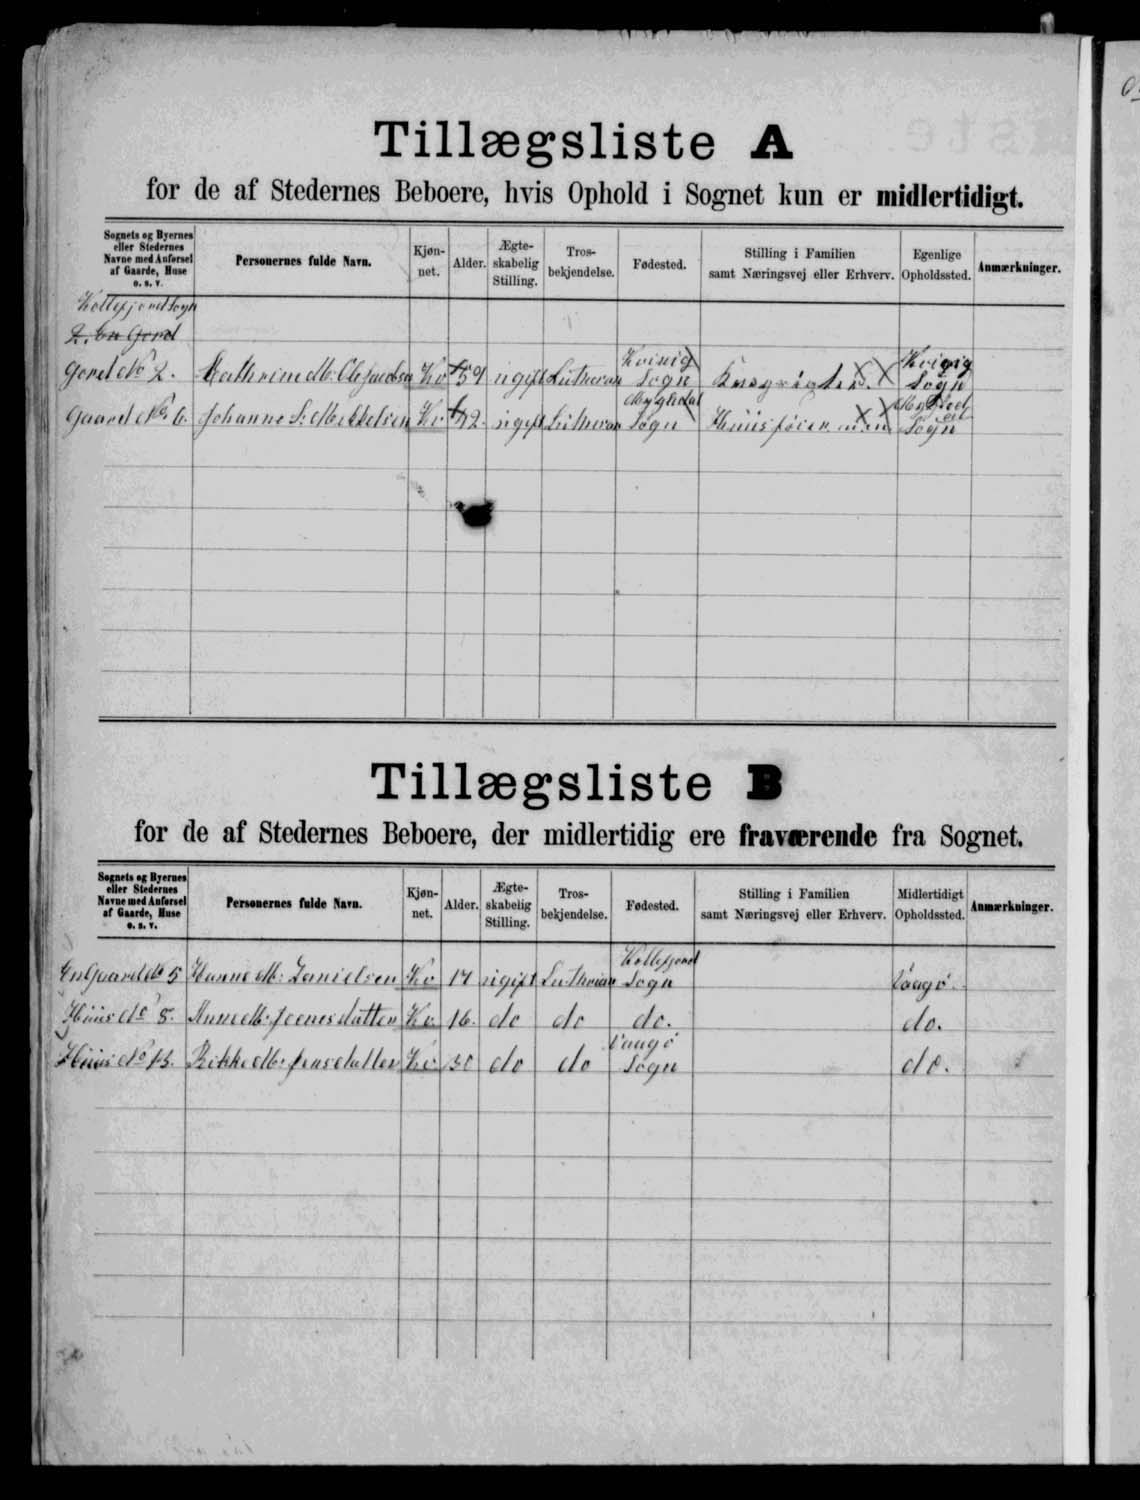 Tillægsliste A
for de af Stedernes Beboere, hvis Ophold i Sognet kun er midlertidigt.
Sognets og Byernes eller Stedernes Navne med Anførsel af Gaarde, Huse o. s. v.
Personernes fulde Navn.
Kjøn-net.
Alder.
Ægte-skabelig Stilling.
Tros-bekjendelse.
Fødested.
Stilling i Familien samt Næringsvej eller Erhverv.
Egenlige Opholdssted.
Anmærkninger.
Kollefjord Sogn
2. En Gord
Gord No 2. Kathrine M. Kv 59 ugift Lutheran Kvivig Sogn Kvivig Sogn
Gaard No 6. Johanne S. Mikkelsen Kv 12. ugift Lutheran Sogn Sogn
Tillægsliste B
for de af Stedernes Beboere, der midlertidig ere fraværende fra Sognet.
Sognets og Byernes eller Stedernes Navne med Anførsel af Gaarde, Huse o. s. v.
Personernes fulde Navn.
Kjøn-net.
Alder.
Ægte-skabelig Stilling.
Tros-bekjendelse.
Fødested.
Stilling i Familien samt Næringsvej eller Erhverv.
Midlertidigt Opholdssted.
Anmærkninger.
En Gaard No 5 Hanne M. Kv 17 ugift Lutheran Kollefjord Sogn Vaagø.
Huus No 8. Anne M. Joenesdatter Kv 16. do do do. do.
Huus No 13. Rikke M. Jensdatter Kv 30 do do Vaagø Sogn do.